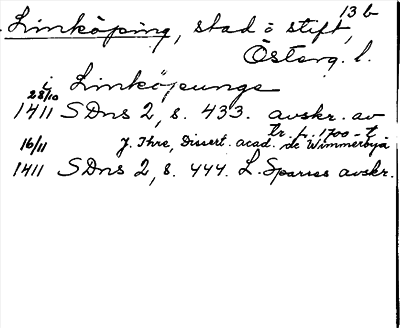 13 b
Linköping, stad o stift,
Österg. l.
i Linköpunge
28/10
1411 SDns 2, s. 433. avskr. av
tr. fr. 1700-t
16/11 J. Ihre, Dissert. acad. de Wimmerbyia
1411 SDns 2, s. 444. L. Sparres avskr.